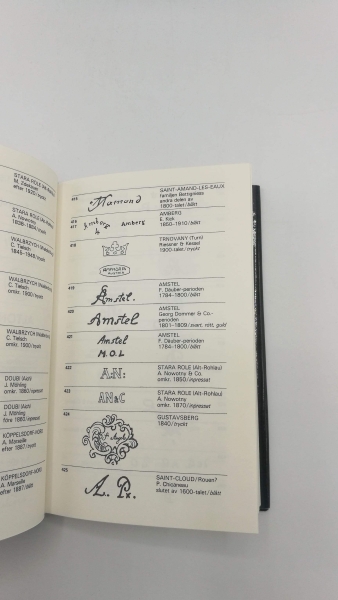 STARA ROLE (Alt-Rohlau)
efter 1920/tryckt
STARA ROLE (Alt-Rohlau)
A. Nowotny
1838-1884/tryckt
WALBRZYCH (Waldenburg)
C. Tielsch
1845-1948/tryckt
WALBRZYCH (Waldenburg)
C. Tielsch
omkr. 1900/tryckt
WALBRZYCH (Waldenburg)
C. Tielsch
omkr. 1900/tryckt
DOUBI (Aich)
J. Möhling
omkr. 1860/inpresset
DOUBI (Aich)
J. Möhling
före 1860/inpresset
KÖPPELSDORF-NORD
A. Marseille
efter 1887/tryckt
KÖPPELSDORF-NORD
A. Marseille
efter 1887/blått
415
St amand
SAINT-AMAND-LES-EAUX
familjen Bettignies
andra delen av
1800-talet/blått
416
417
Amberg
Amberg
AMBERG
E. Kick
1850-1910/blått
418
AUSTRIA
TRNOVANY (Turn)
Riessner & Kessel
1900-talet/tryckt
419
Amstel.
AMSTEL
F. Däuber-perioden
1784-1800/blått
420
Amstel
AMSTEL
Georg Dommer & Co-
perioden
1801-1809/svart, rött, guld
421
Amstel
M.O.L
AMSTEL
F. Däuber-perioden
1784-1800/blått
422
A:N:
STARA ROLE (Alt-Rohlau)
A. Nowotny & Co
omkr. 1850/inpresset
423
AN&C
STARA ROLE (Alt-Rohlau)
A. Nowotny
omkr. 1870/inpresset
424
GUSTAVSBERG
1840/tryckt
425
A. Px.
SAINT-CLOUD/Rouen?
F. Chicaneau
slutet av 1600-talet/blått